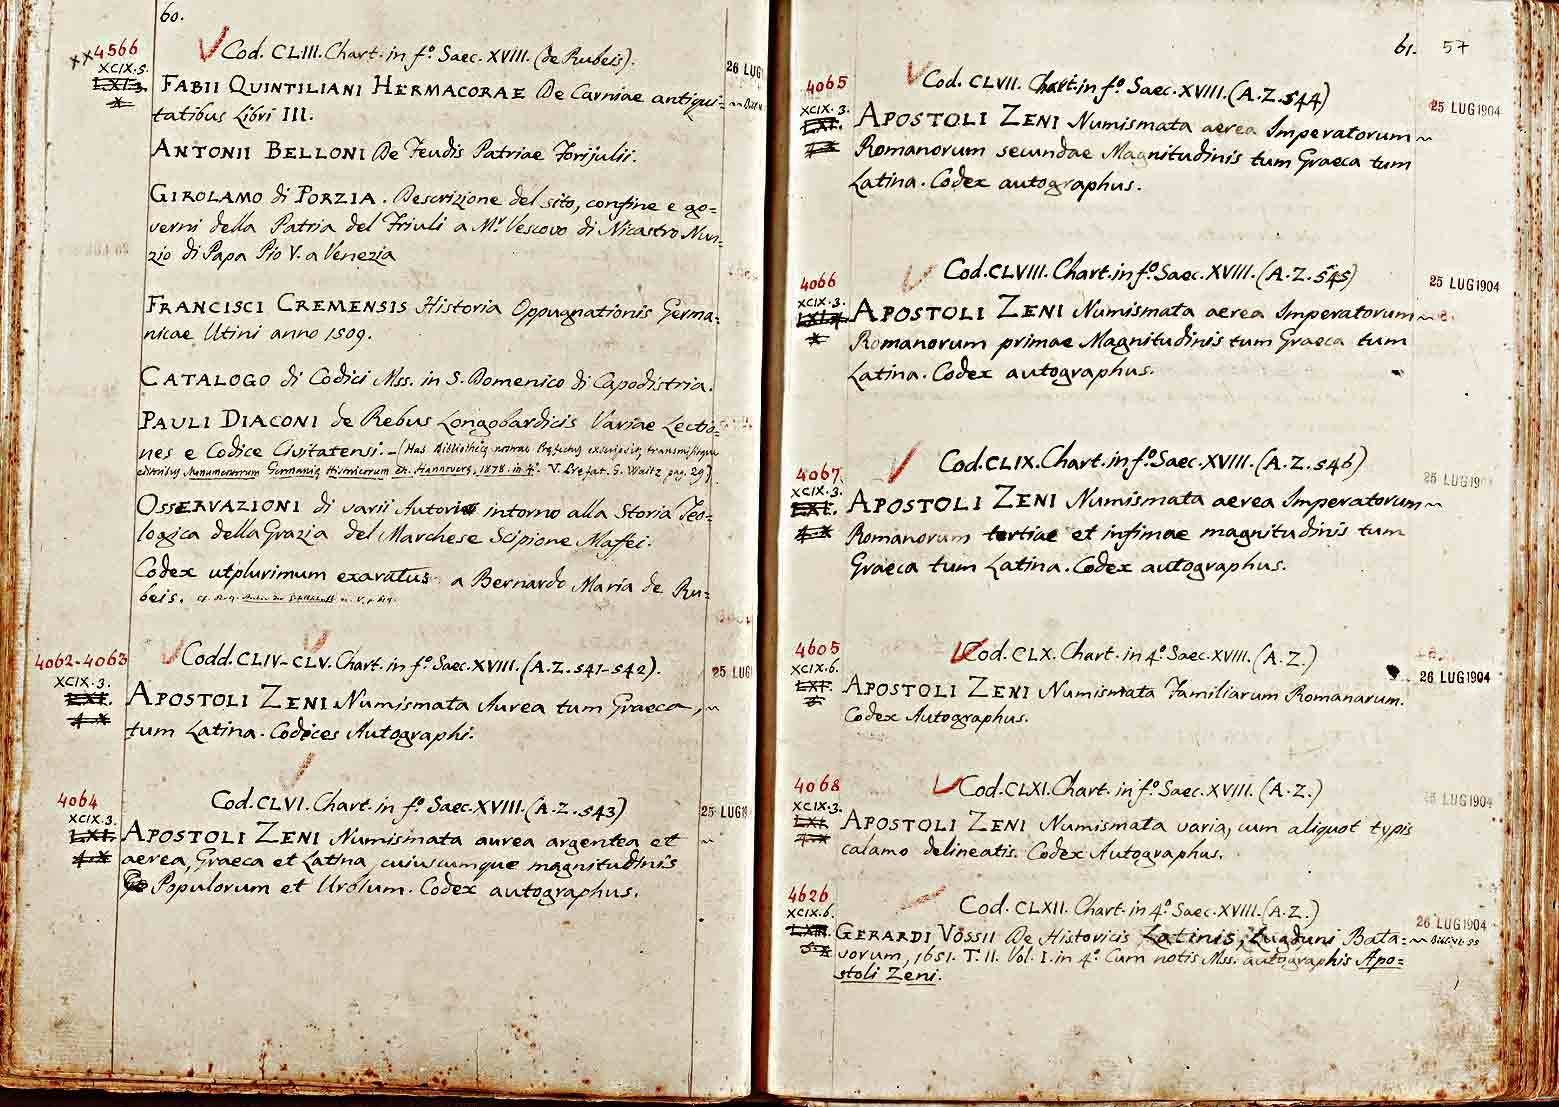 60.
4566
XCIX.5.
Cod. CLIII. Chart. in f.º Saec. XVIII. (de Rubeis).
26 LUG
FABII QUINTILIANI HERMACORAE De Carniae antiqui=
tatibus Libri III.
ANTONII BELLONI De Feudis Patriae Forijulii.
GIROLAMO di PORZIA. Descrizione del sito, confine e go=
verni della Patria del Friuli a M.r Vescovo di Nicastro Nun=
zio di Papa Pio V. a Venezia
FRANCISCI CREMENSIS Historia Oppugnationis Germa=
nicae Utini anno 1509.
CATALOGO di Codici Mss. in S. Domenico di Capodistria.
PAULI DIACONI de Rebus Longobardicis Variae Lectio=
nes e Codice Civitatensi. - (Has Bibliothecę nostrae Pręfectus exscripsit, transmisitque
editoribus Monumentorum Germanię Historicorum ch. Hannoverę, 1878. in 4.º V. Prefat. G. Waitz pag. 29).
OSSERVAZIONI di varii Autori intorno alla Storia Teo=
logica della Grazia del Marchese Scipione Maffei.
Codex utplurimum exaratus a Bernardo Maria de Ru=
beis.
4062-4063
XCIX.3.
Codd. CLIV-CLV. Chart. in f.º Saec. XVIII. (A.Z. 541-542).
25 LUG
APOSTOLI ZENI Numismata Aurea tum Graeca,
tum Latina. Codices Autographi.
4064
XCIX.3.
Cod. CLVI. Chart. in f.º Saec. XVIII. (A.Z. 543)
25 LUG
APOSTOLI ZENI Numismata aurea argentea et
aerea, Graeca et Latina cuiuscumque magnitudinis
Populorum et Urbium. Codex autographus.
61. 57
4065
XCIX.3.
Cod. CLVII. Chart. in f.º Saec. XVIII. (A.Z. 544)
25 LUG 1904
APOSTOLI ZENI Numismata aerea Imperatorum
Romanorum secundae Magnitudinis tum Graeca tum
Latina. Codex autographus.
4066
XCIX.3.
Cod. CLVIII. Chart. in f.º Saec. XVIII. (A.Z. 545)
25 LUG 1904
APOSTOLI ZENI Numismata aerea Imperatorum
Romanorum primae Magnitudinis tum Graeca tum
Latina. Codex autographus.
4067
XCIX.3.
Cod. CLIX. Chart. in f.º Saec. XVIII. (A.Z. 546)
25 LUG 190
APOSTOLI ZENI Numismata aerea Imperatorum
Romanorum tertiae et infimae magnitudinis tum
Graeca tum Latina. Codex autographus.
4605
XCIX.6.
Cod. CLX. Chart. in 4.º Saec. XVIII. (A.Z.)
26 LUG 1904
APOSTOLI ZENI Numismata Familiarum Romanarum.
Codex Autographus.
4068
XCIX.3.
Cod. CLXI. Chart. in f.º Saec. XVIII. (A.Z.)
25 LUG 1904
APOSTOLI ZENI Numismata varia, cum aliquot typis
calamo delineatis. Codex Autographus.
4626
XCIX.6.
Cod. CLXII. Chart. in 4.º Saec. XVIII. (A.Z.)
26 LUG 1904
GERARDI VOSSII De Historicis Latinis, Lugduni Bata=
vorum, 1651. T. II. Vol. I. in 4.º Cum notis Mss. autographis Apo=
stoli Zeni.